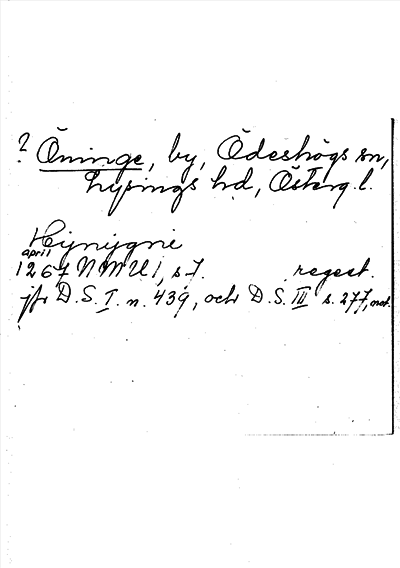 ? Öninge, by, Ödeshögs sn,
Lysings hd, Österg. l.
Hijnijgnie
april
1267 NMU 1, s. 7. regest.
jfr D.S. I. n. 439, och D.S. III s. 277, not.